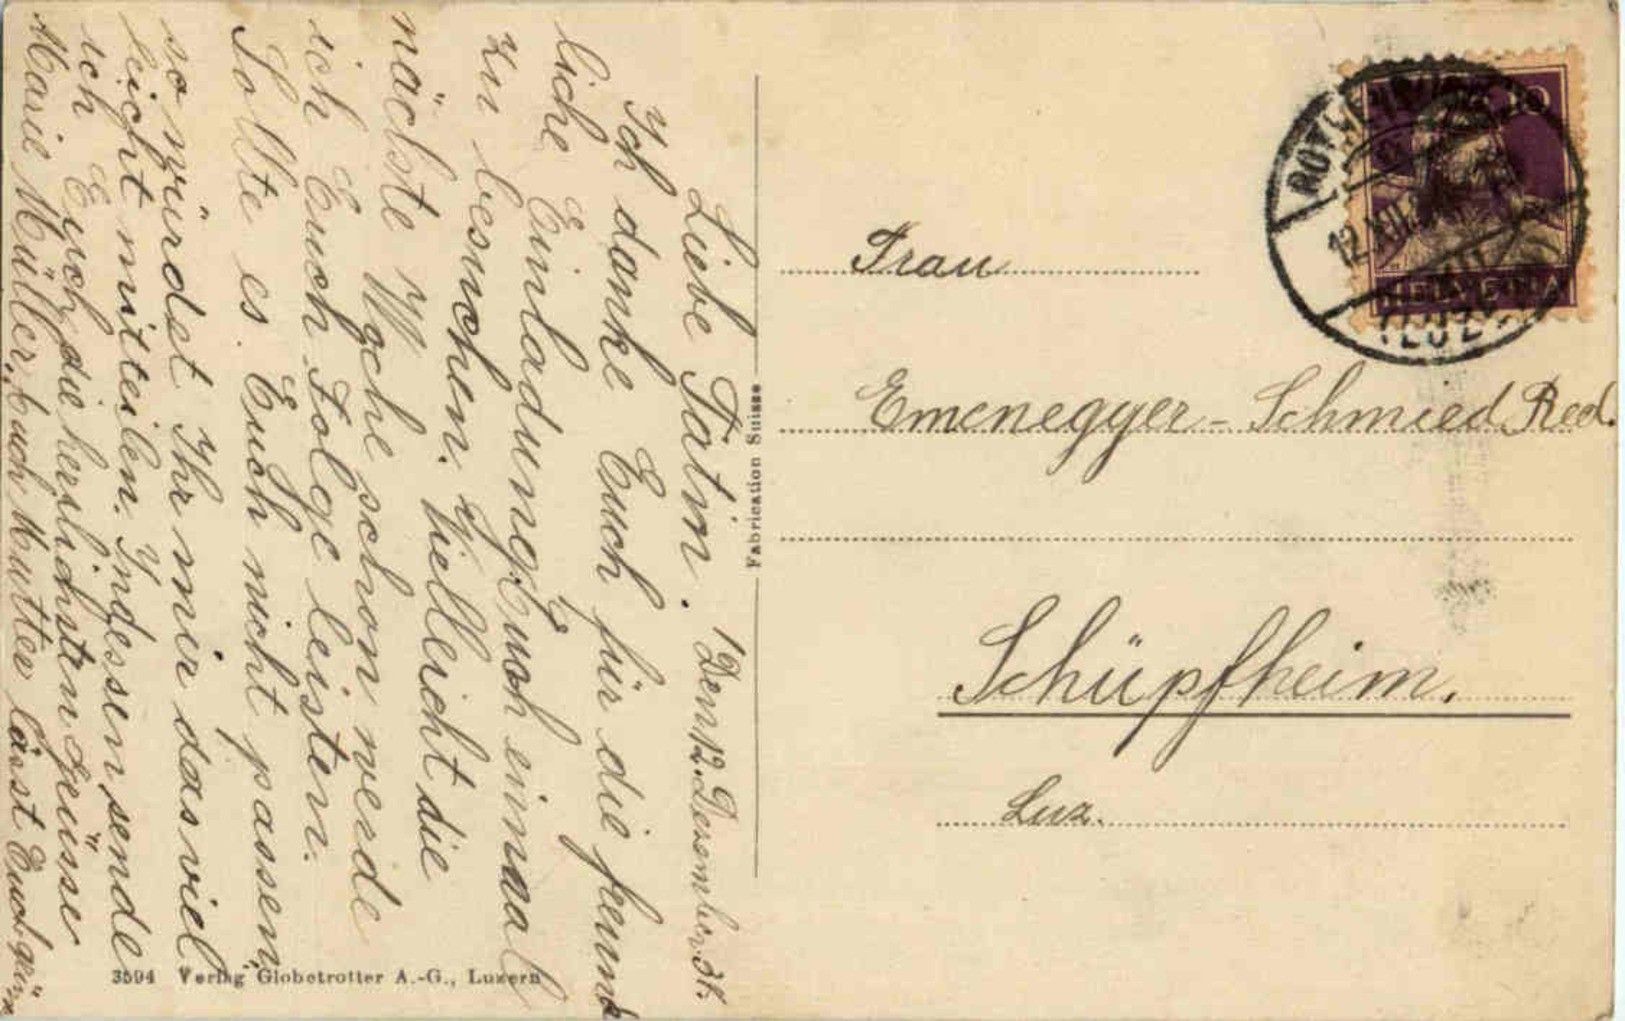 Liebe Tatin.
Den 12. Dezember 31.
Ich danke Euch für die freund
liche Einladung Euch einmal
zu besuchen. Vielleicht die
nächste Woche schon werde
ich Euch Folge leisten.
Sollte es Euch nicht passen,
so würdet Ihr mir das viel
leicht mitteilen. Indessen sende
ich Euch die herlichsten Grüsse
Marie Müller, Euch Mutter lässt Euch grüssen
Fabrication Suisse
3594 Verlag Globetrotter A.-G., Luzern
HELVETIA
10
12.XII.
(LUZ
Frau
Emenegger-Schmied Red.
Schüpfheim.
Luz.